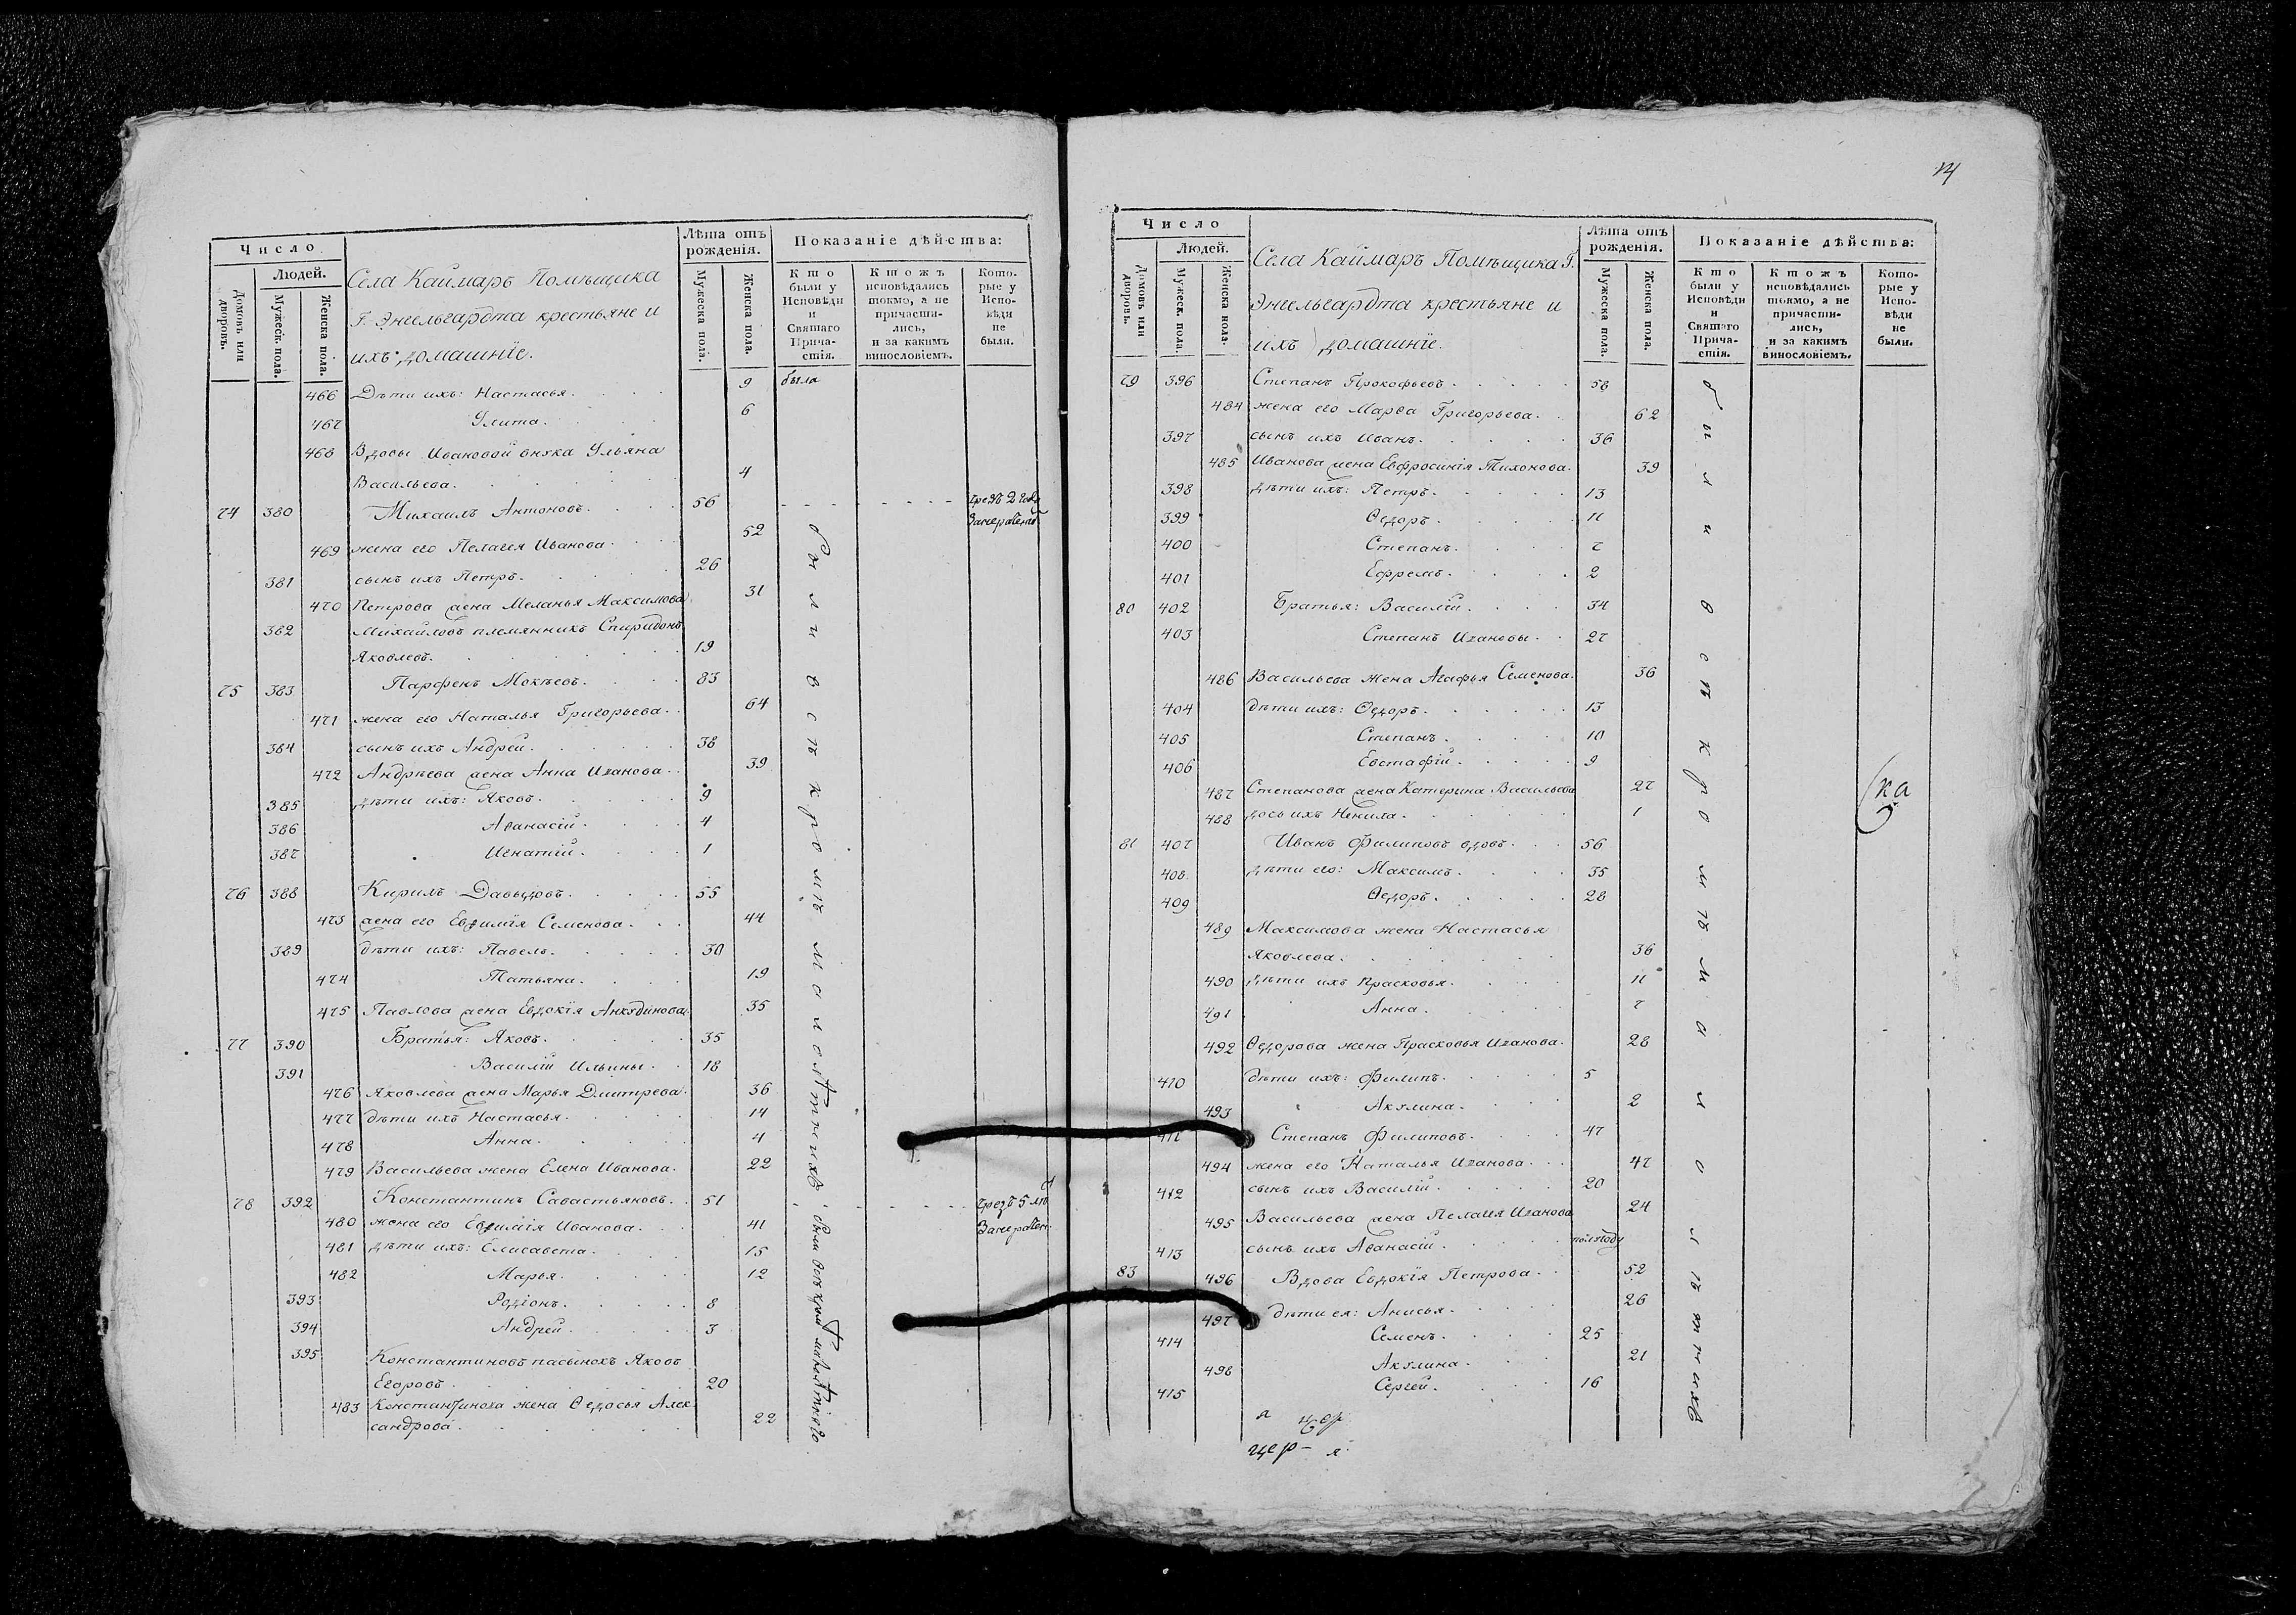 Число
Людей.
Домовъ или дворовъ.
Мужеск. пола.
Женска пола.
Села Каймаръ Помѣщика
Г. Энгельгардта крестьяне и
ихъ домашніе.
Лѣта отъ рожденія.
Мужеска пола.
Женска пола.
Показаніе дѣйства:
Кто были у Исповѣди и Святаго Причастія.
Ктожъ исповѣдались токмо, а не причастились, и за какимъ винословіемъ.
Которые у Исповѣди не были.
466 Дѣти ихъ: Настасья. 9 была
467 Улита. 6
468 Вдовы Ивановой внука Ульяна
Васильева. 4
74 380 Михаилъ Антоновъ. 56
469 жена его Пелагея Иванова. 52
381 сынъ ихъ Петръ. 26
470 Петрова жена Меланья Максимова 31
382 Михайловъ племянникъ Спиридонъ
Яковлевъ. 19
75 383 Парфенъ Мокѣевъ. 83
471 жена его Наталья Григорьева. 64
384 сынъ ихъ Андрей. 38
472 Андрѣева жена Анна Иванова. 39
385 дѣти ихъ: Яковъ. 9
386 Аѳанасій. 4
387 Игнатій. 1
76 388 Кирилъ Давыдовъ. 55
473 жена его Евѳимія Семенова. 44
389 дѣти ихъ: Павелъ. 30
474 Татьяна. 19
475 Павлова жена Евдокія Анкудинова 35
77 390 Братья: Яковъ. 35
391 Василій Ильины. 18
476 Яковлева жена Марья Дмитрева. 36
477 дѣти ихъ Настасья. 14
478 Анна. 4
479 Васильева жена Елена Иванова. 22
78 392 Константинъ Савастьяновъ. 51
480 жена его Евѳимія Иванова. 41
481 дѣти ихъ: Елисавета. 15
482 Марья. 12
393 Родіонъ. 8
394 Андрей. 3
395 Константиновъ пасынокъ Яковъ
Егоровъ. 20
483 Константинова жена Ѳедосья Алек
сандрова. 22
были всѣ кромѣ малолѣтнихъ
были всѣ кромѣ малолѣтняго
Число
Людей.
Домовъ или дворовъ.
Мужеск. пола.
Женска пола.
Села Каймаръ Помѣщика Г.
Энгельгардта крестьяне и
ихъ домашніе.
Лѣта отъ рожденія.
Мужеска пола.
Женска пола.
Показаніе дѣйства:
Кто были у Исповѣди и Святаго Причастія.
Ктожъ исповѣдались токмо, а не причастились, и за какимъ винословіемъ.
Которые у Исповѣди не были.
79 396 Степанъ Прокофьевъ. 58
484 жена его Марѳа Григорьева. 62
397 сынъ ихъ Иванъ. 36
485 Иванова жена Евфросинія Тихонова. 39
398 дѣти ихъ: Петръ. 13
399 Ѳедоръ. 11
400 Степанъ. 7
401 Ефремъ. 2
80 402 Братья: Василій. 34
403 Степанъ Ивановы. 27
486 Васильева жена Агафья Семенова. 36
404 дѣти ихъ: Ѳедоръ. 13
405 Степанъ. 10
406 Евстафій. 9
487 Степанова жена Катерина Васильева 27
488 дочь ихъ Ненила. 1
81 407 Иванъ Филиповъ вдовъ. 56
408 дѣти его: Максимъ. 35
409 Ѳедоръ. 28
489 Максимова жена Настасья
Яковлева. 36
490 дѣти ихъ Прасковья. 11
491 Анна. 7
492 Ѳедорова жена Прасковья Иванова. 28
410 дѣти ихъ: Филипъ. 5
493 Акулина. 2
Степанъ Филиповъ. 47
494 жена его Наталья Иванова. 47
412 сынъ ихъ Василій. 20
495 Васильева жена Пелагея Иванова 24
413 сынъ ихъ Аѳанасій. полгоду
83 496 Вдова Евдокія Петрова. 52
497 дѣти ея: Анисья. 26
414 Семенъ. 25
498 Акулина. 21
415 Сергей. 16
были всѣ кромѣ малолѣтнихъ
ка